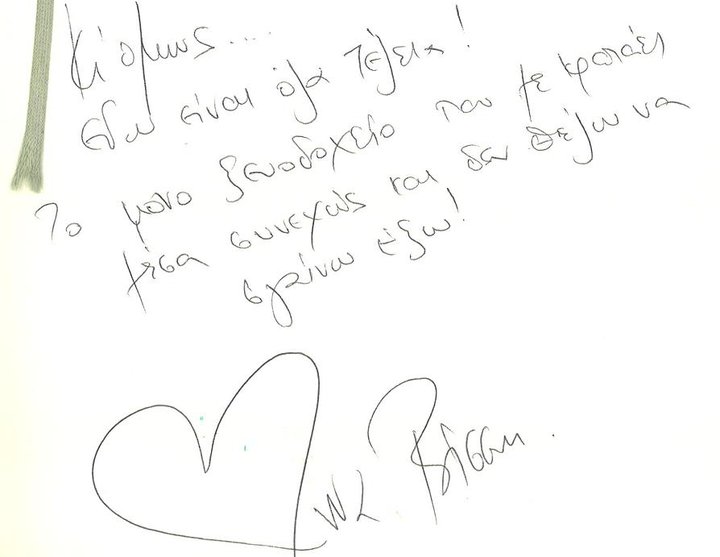 Κι όμως....
εδω είναι όλα τέλεια!
Το μονο ξενοδοχείο που με κρατάει
μέσα συνεχώς και δεν θέλω να
βγαίνω έξω!
Βίσση.